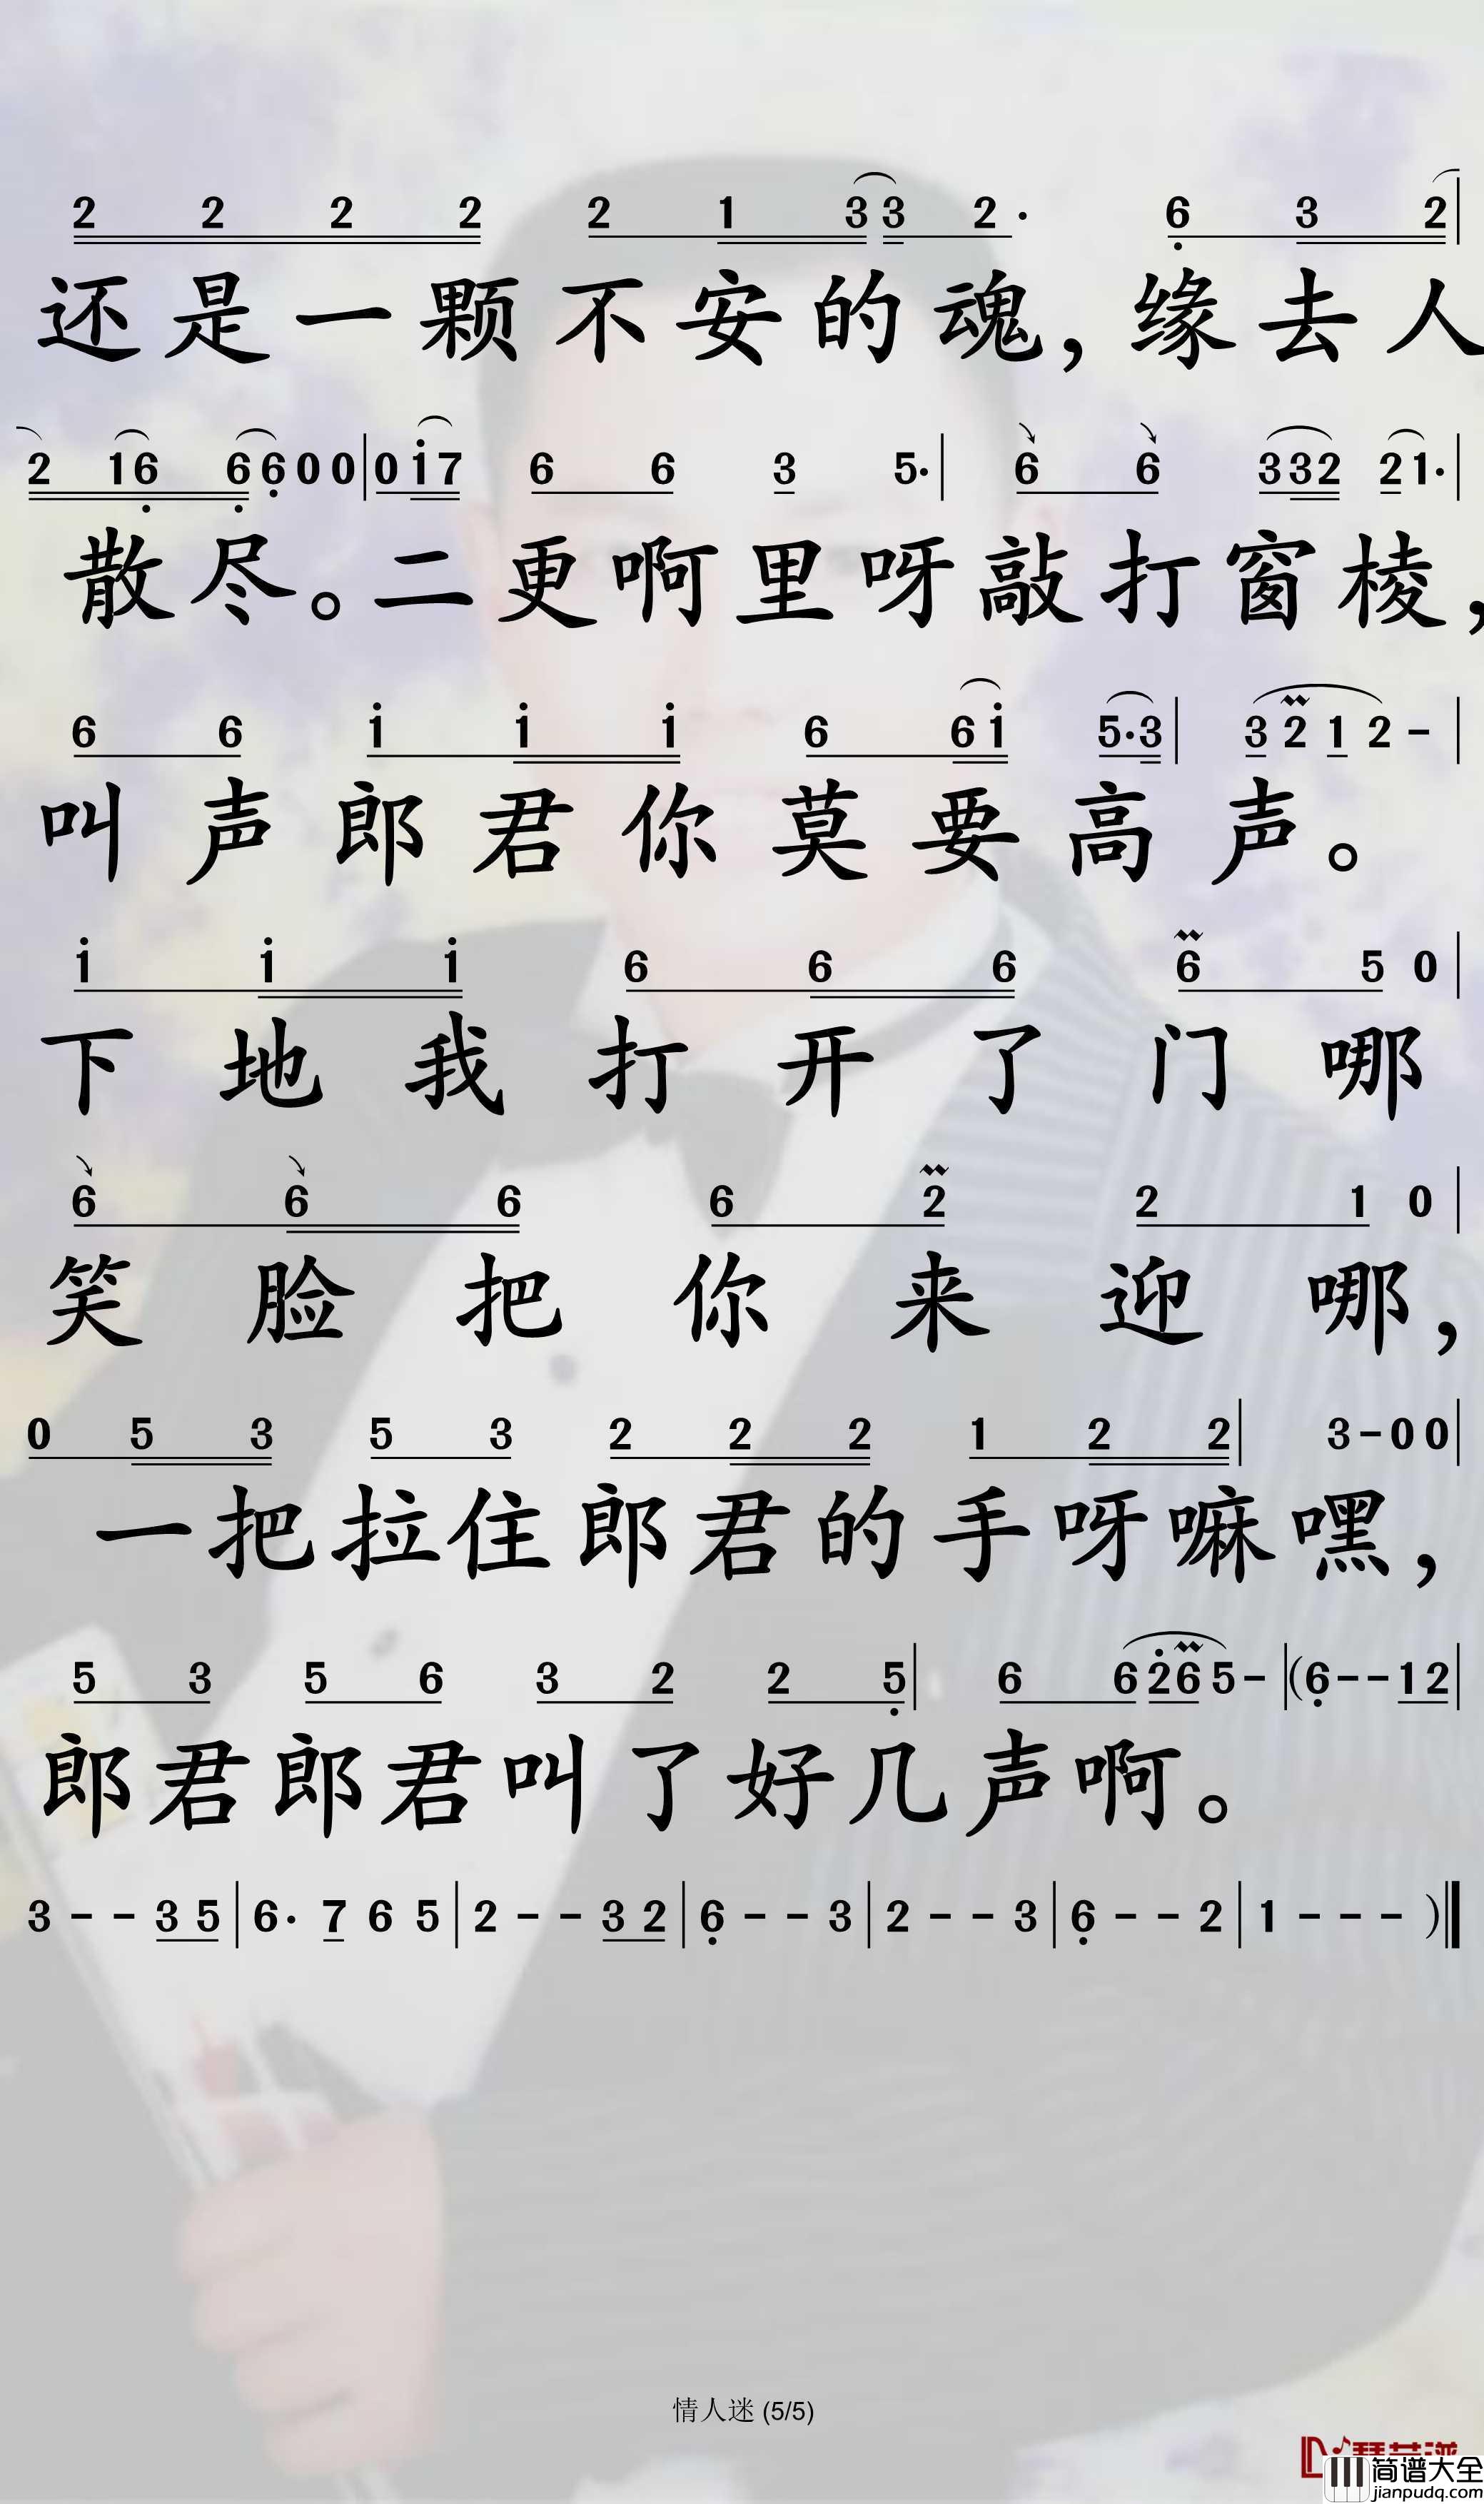 2 2 2 2 2 1 3 3 2· 6 3 2
还是一颗不安的魂,缘去人
2 1 6 6 6 0 0 | 0 1 7 6 6 3 5· | 6 6 3 3 2 2 1· |
散尽。二更啊里呀敲打窗棱,
6 6 1 1 1 6 6 1 5·3 | 3 2 1 2 - |
叫声郎君你莫要高声。
1 1 1 6 6 6 6 5 0 |
下地我打开了门哪
6 6 6 6 2 2 1 0 |
笑脸把你来迎哪,
0 5 3 5 3 2 2 2 1 2 2 | 3 - 0 0 |
一把拉住郎君的手呀嘛嘿,
5 3 5 6 3 2 2 5 | 6 6 2 6 5 - | (6 - - 1 2 |
郎君郎君叫了好几声啊。
3 - - 3 5 | 6· 7 6 5 | 2 - - 3 2 | 6 - - 3 | 2 - - 3 | 6 - - 2 | 1 - - - )
情人迷 (5/5)
简谱大全
jianpudq.com